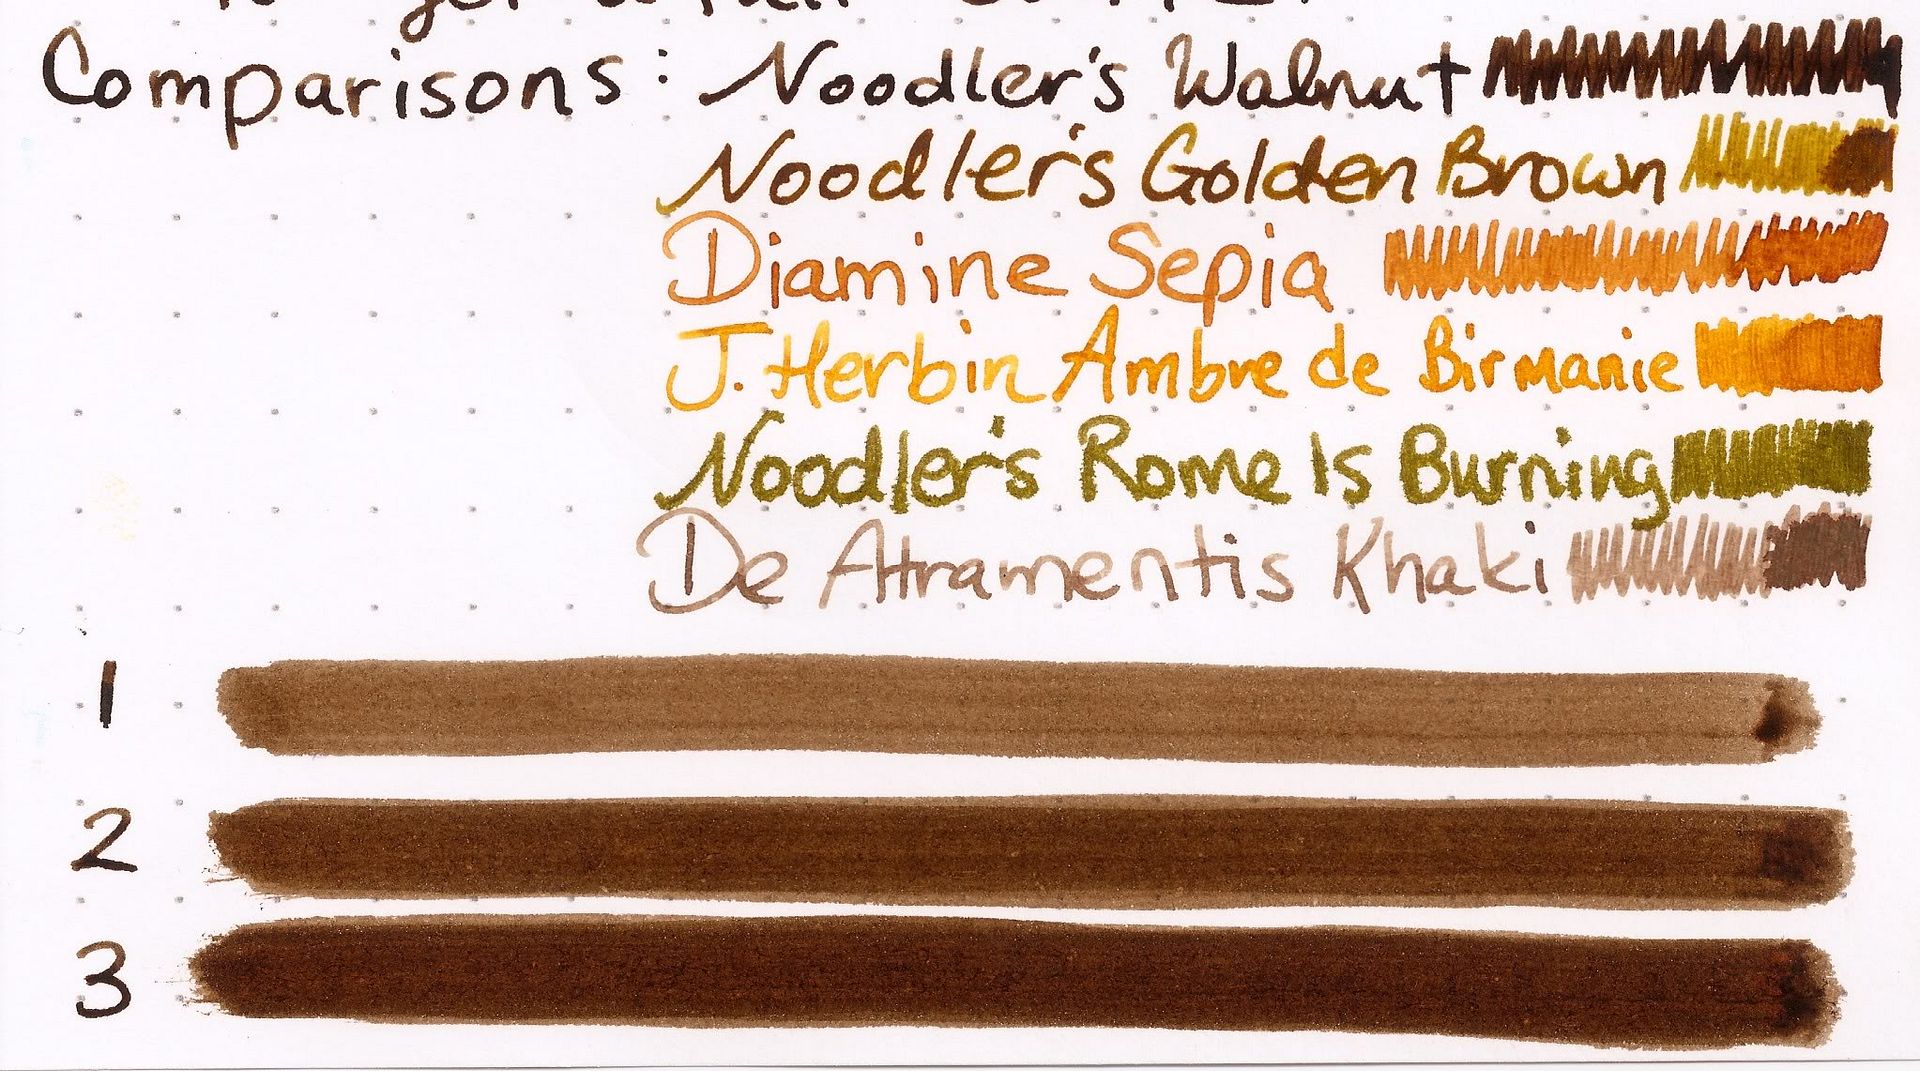 Comparisons: Noodler's Walnut
Noodler's Golden Brown
Diamine Sepia
J. Herbin Ambre de Birmanie
Noodler's Rome Is Burning
De Atramentis Khaki
1
2
3